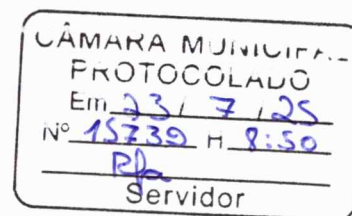 CÂMARA MUNICIPAL
PROTOCOLADO
Em 23 / 7 / 25
Nº 15739 H 8:50
Servidor